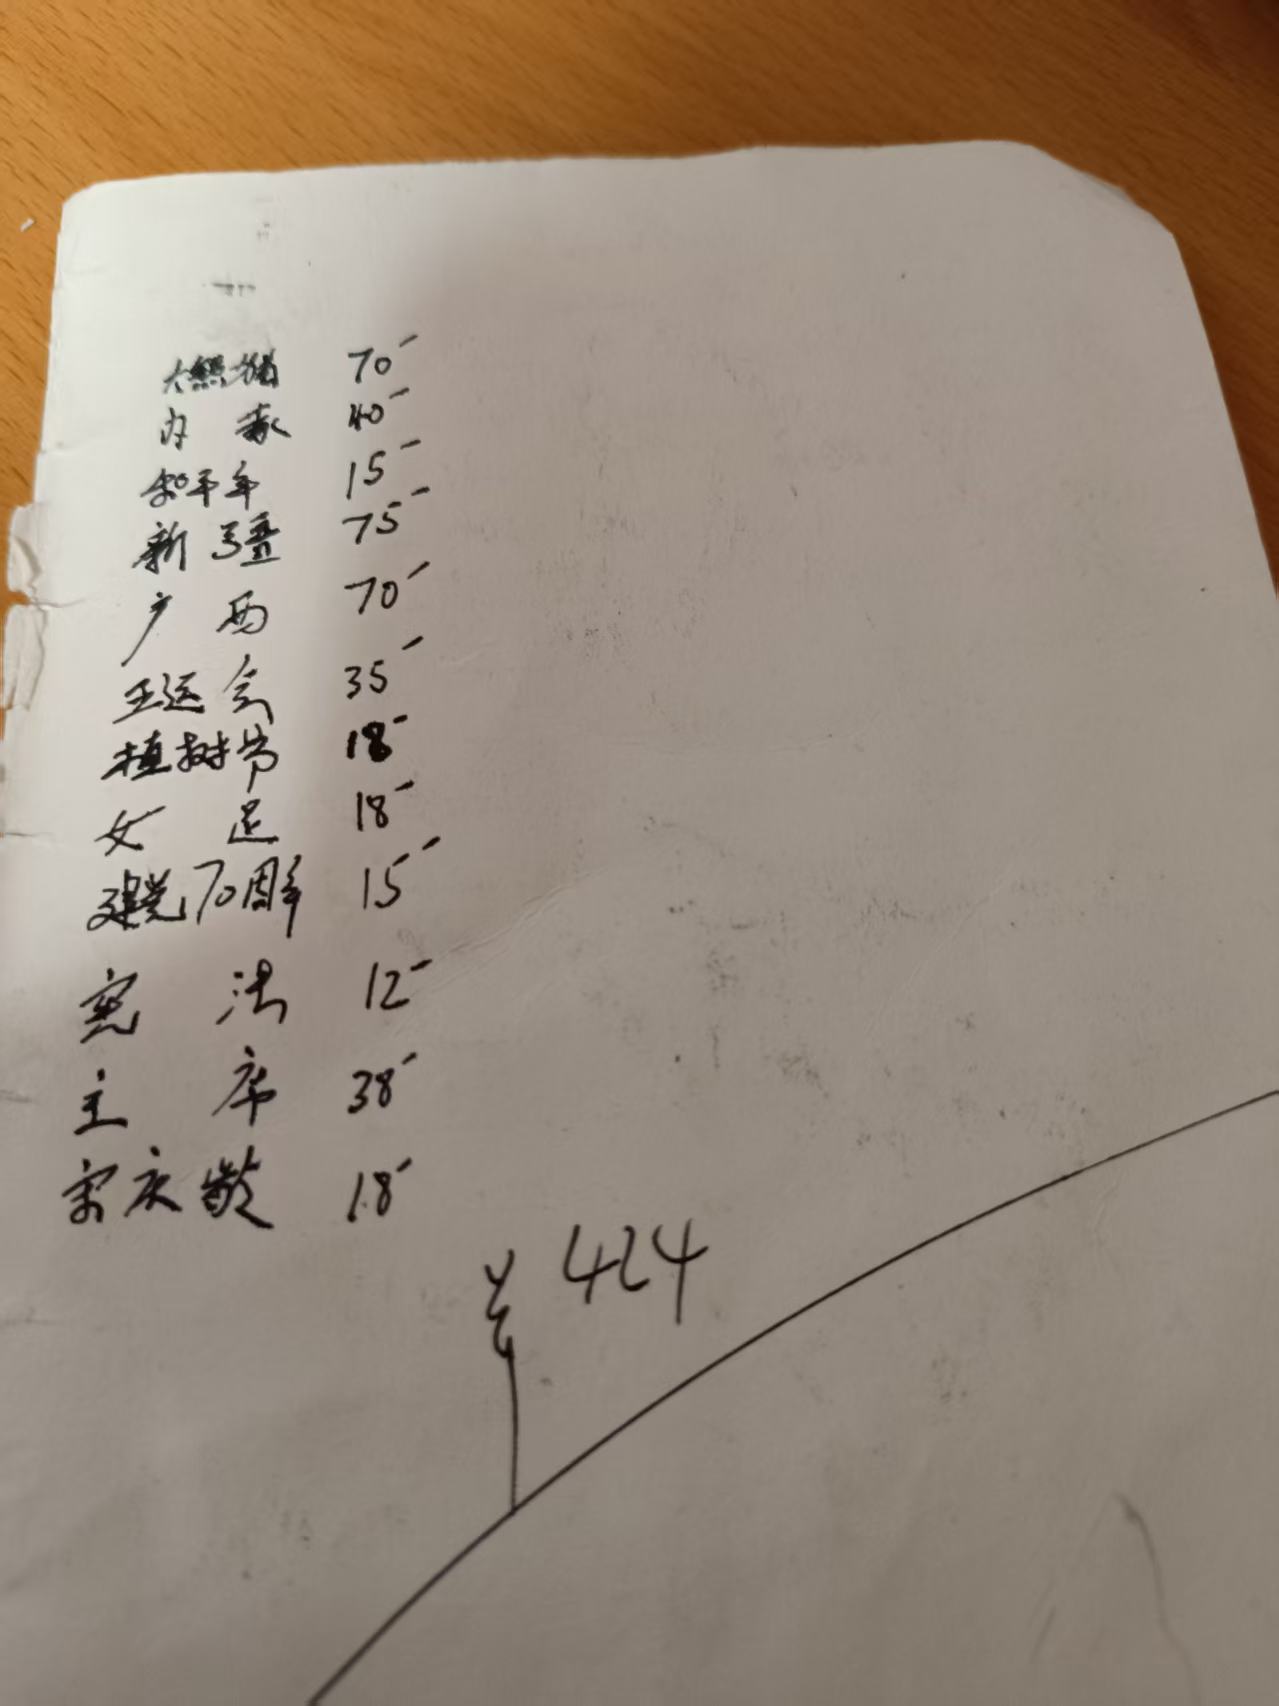 大熊猫 70-
内蒙 40-
和平年 15-
新疆 75-
广西 70-
运会 35-
植树节 18-
女足 18-
建党70周年 15-
宪法 12-
主席 38-
宋庆龄 18-
424